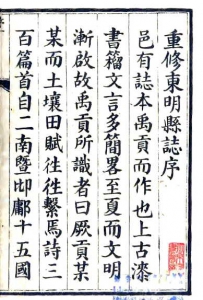 重修東明縣誌序
邑有誌本禹貢而作也上古漆
書籀文言多簡畧至夏而文明
漸啟故禹貢所識者曰厥貢某
某而土壤田賦徃徃繫焉詩三
百篇首自二南曁邶鄘十五國